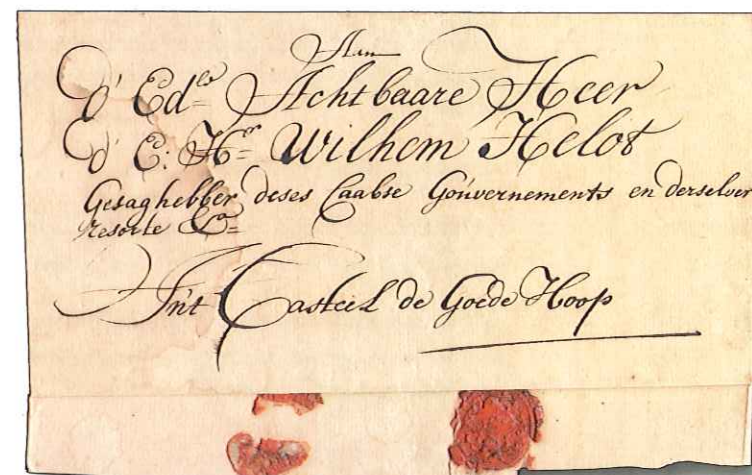 Aan
d' Ed<sup>le</sup> Achtbaare Heer
d' E: H<sup>r</sup> Wilhem Helot
Gesaghebber deses Caabse Gouvernements en derselver
resorte &<sup>a</sup>
In't Casteel de Goede Hoop